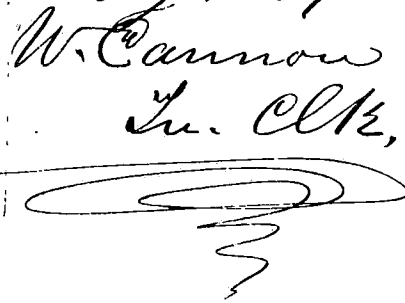 W. Cannon
Tn. Clk,